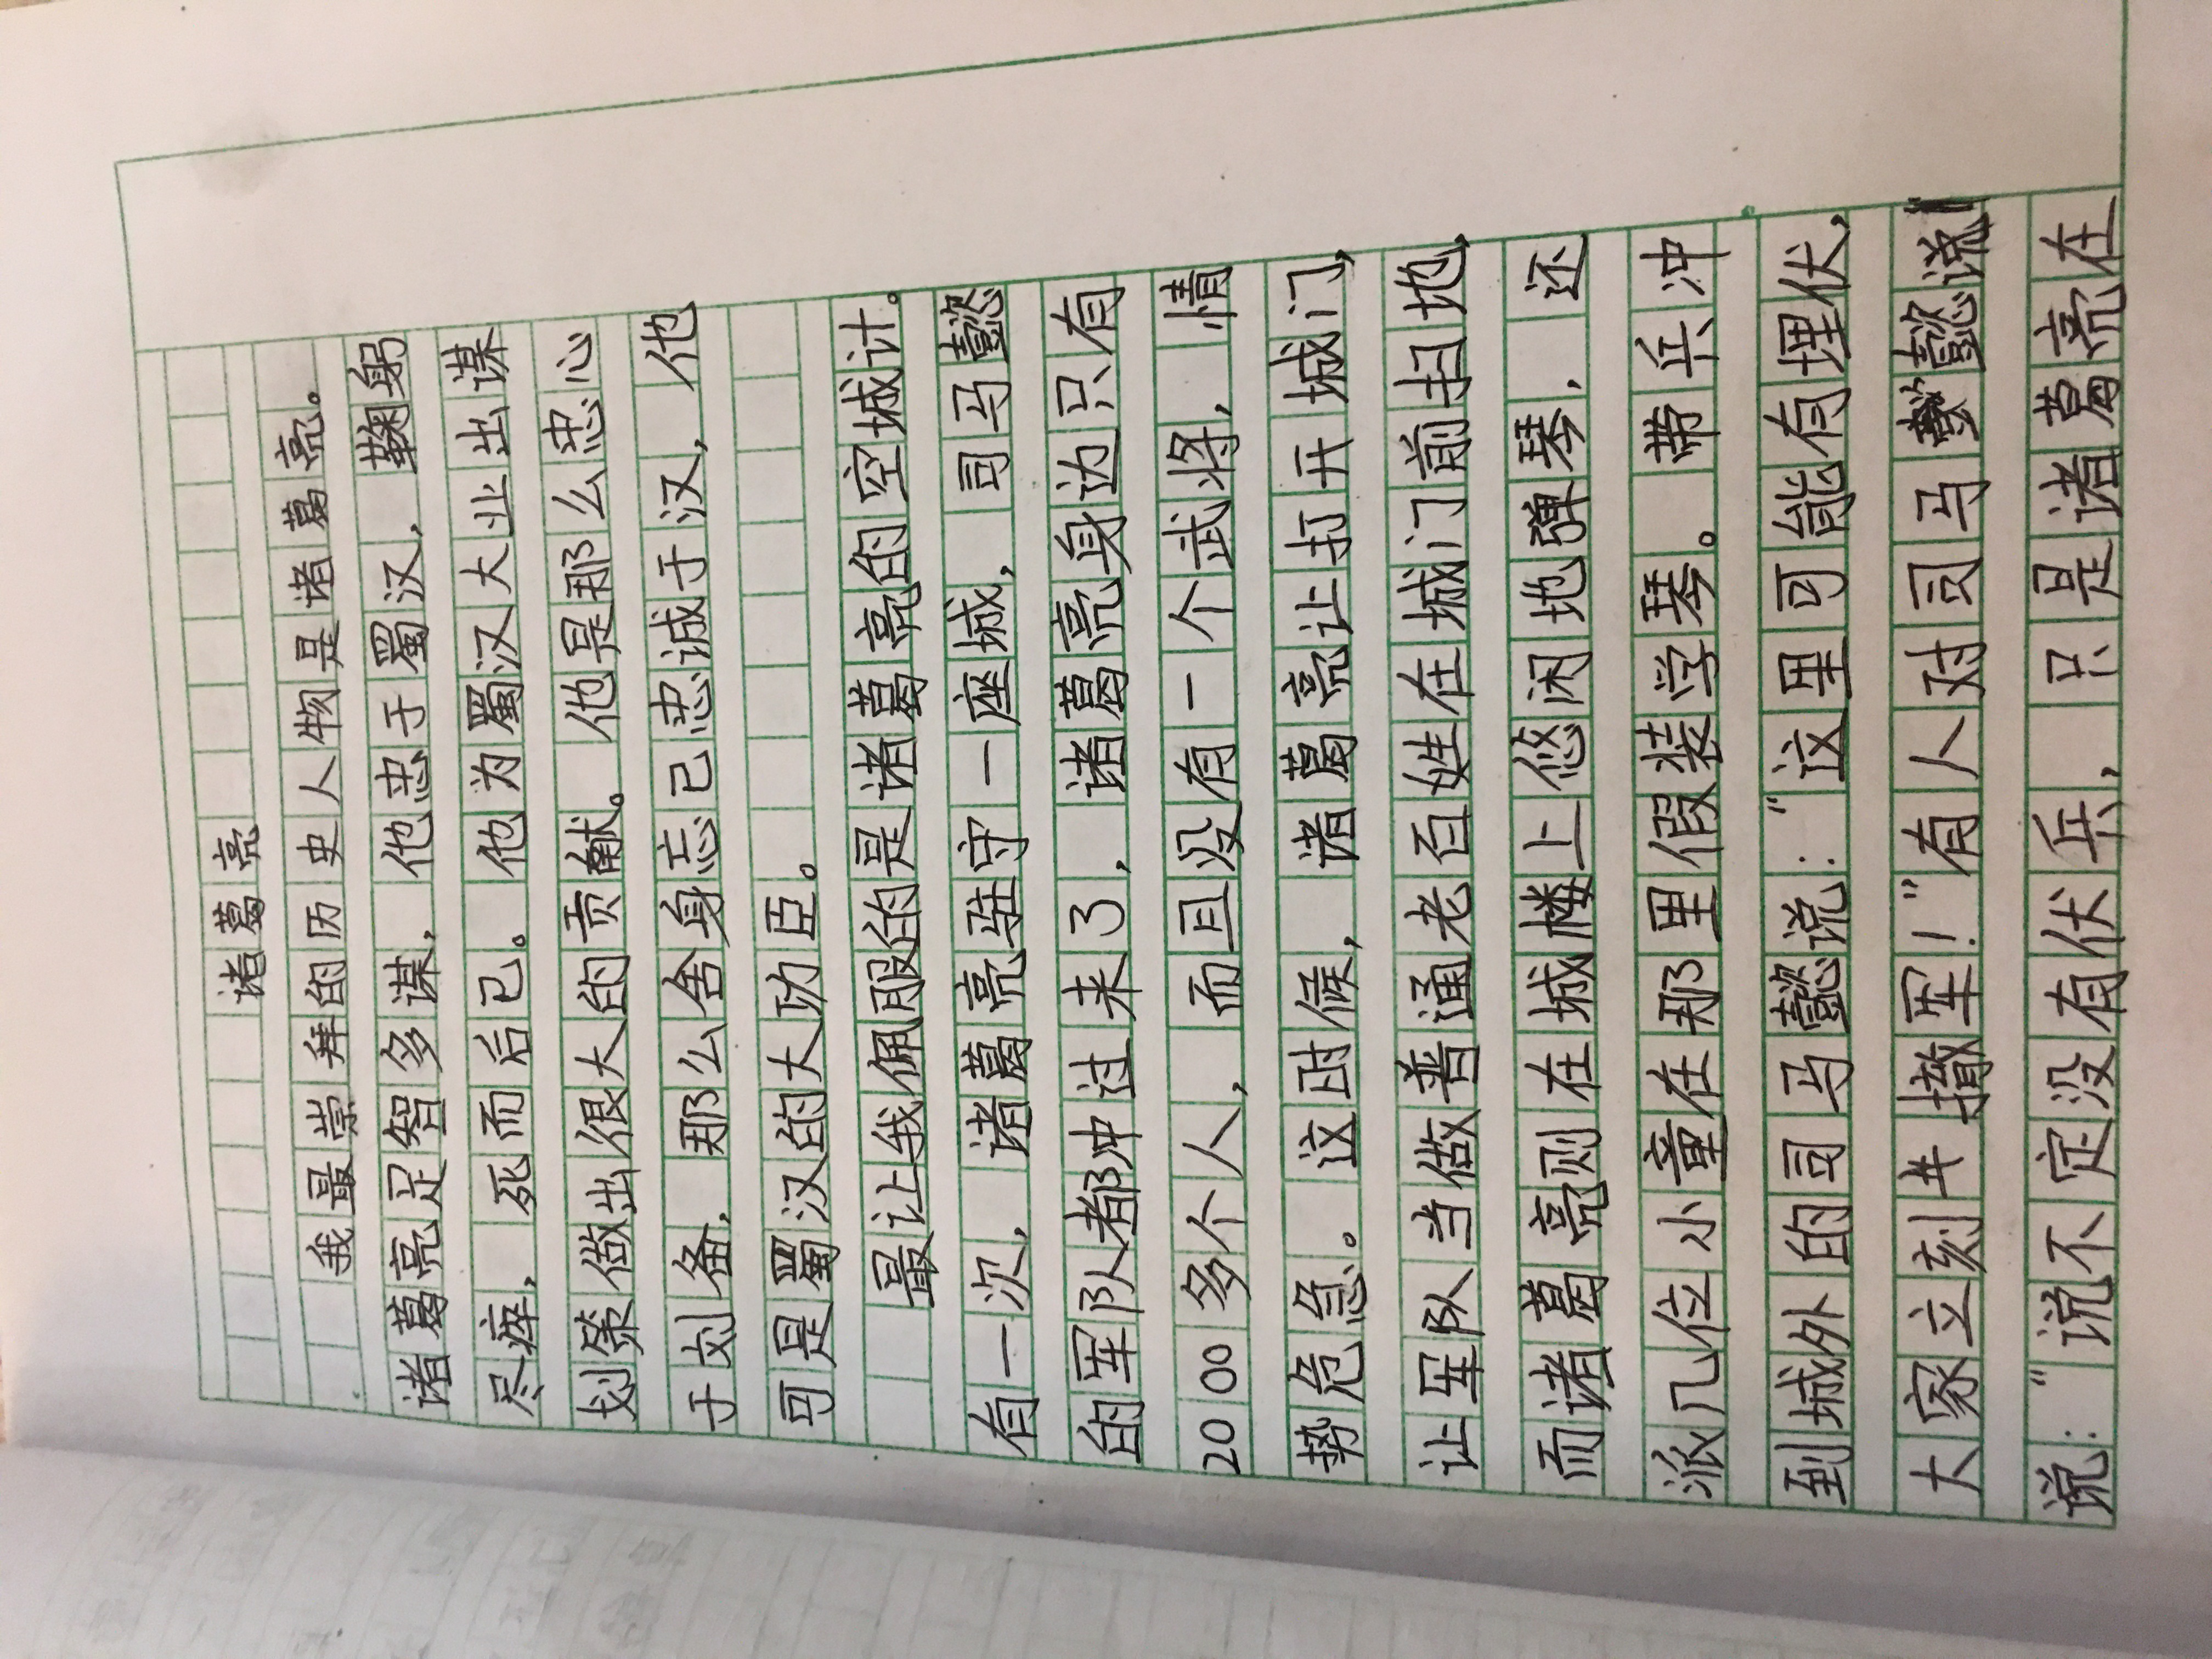 诸葛亮
我最崇拜的历史人物是诸葛亮。
诸葛亮足智多谋，他忠于蜀汉，鞠躬
尽瘁，死而后已。他为蜀汉大业出谋
划策做出很大的贡献。他是那么忠心
于刘备，那么舍身忘己忠诚于汉，他
可是蜀汉的大功臣。
最让我佩服的是诸葛亮的空城计。
有一次，诸葛亮驻守一座城，司马懿
的军队都冲过来了，诸葛亮身边只有
2000多个人，而且没有一个武将，情
势危急。这时候，诸葛亮让打开城门，
让军队当做普通老百姓在城门前扫地，
而诸葛亮则在城楼上悠闲地弹琴，还
派几位小童在那里假装学琴。带兵冲
到城外的司马懿说：“这里可能有埋伏，
大家立刻撤军！”有人对司马懿说
说：“说不定没有伏兵，只是诸葛亮在